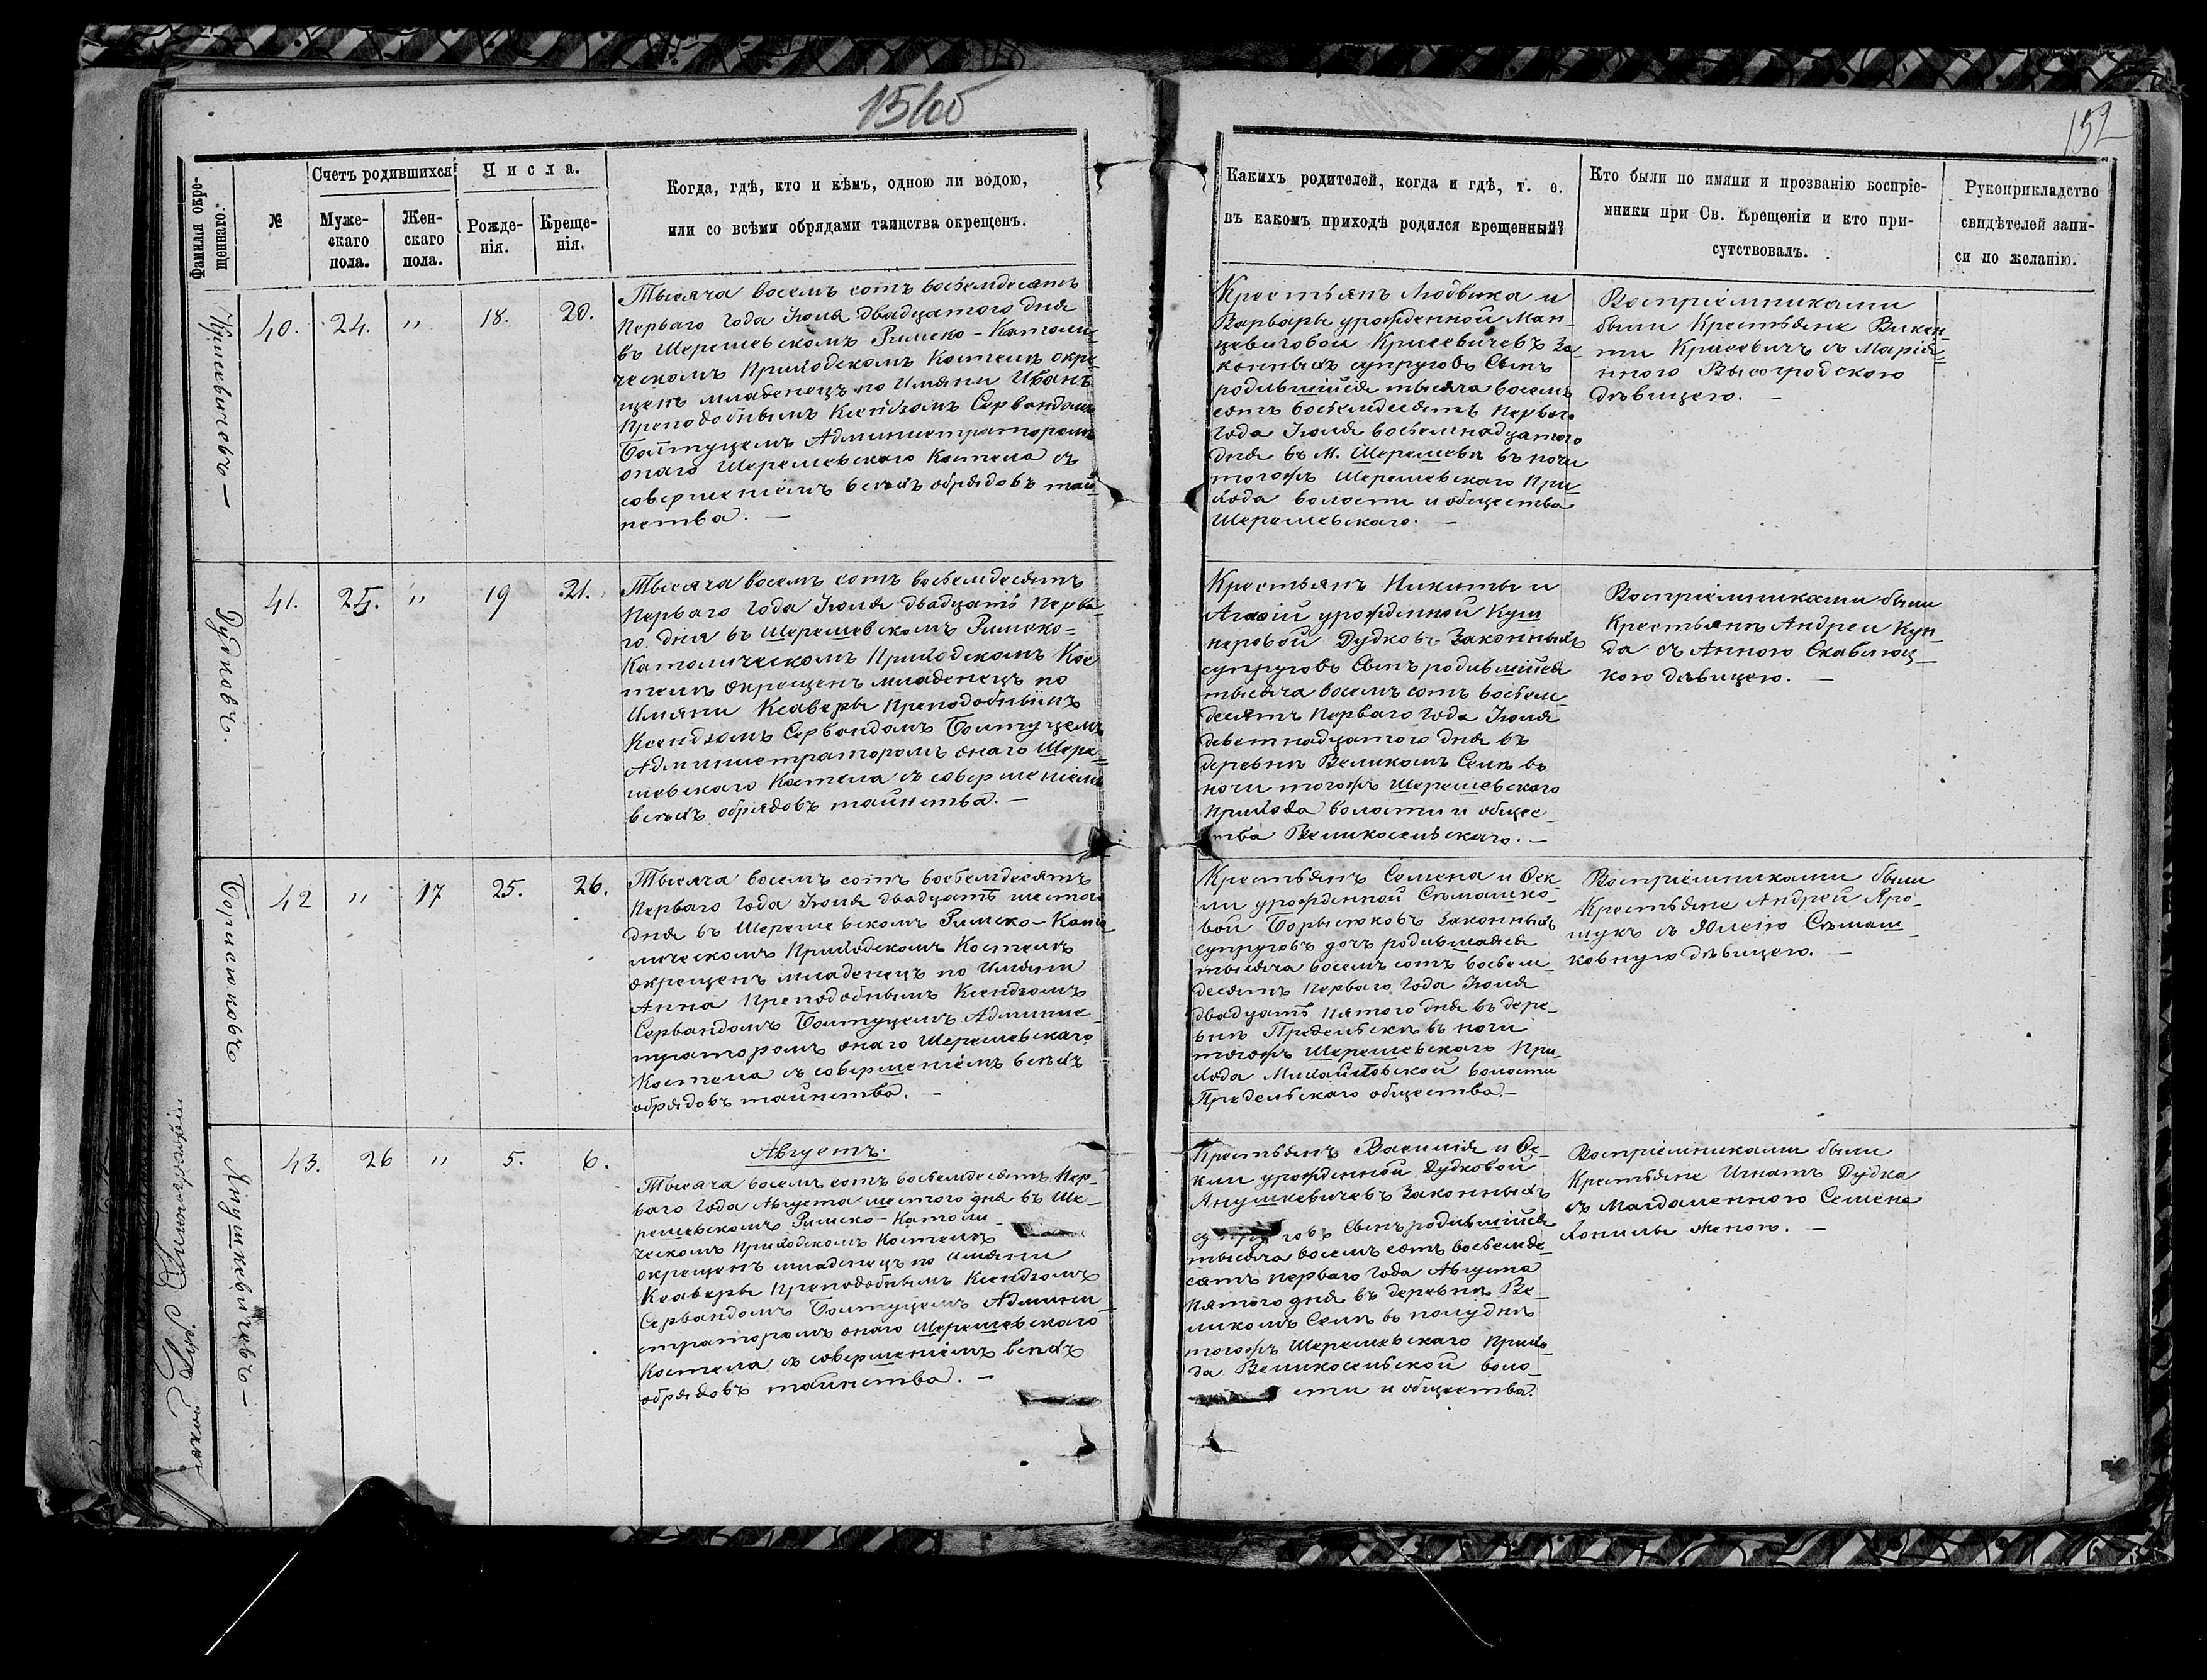 151об
152
Фамилія окре-
щеннаго.
№
Счетъ родившихся
Муже-
скаго
пола.
Жен-
скаго
пола.
Числа.
Рожде-
нія.
Креще-
нія.
Когда, гдѣ, кто и кѣмъ, одною ли водою,
или со всѣми обрядами таинства окрещенъ.
Какихъ родителей, когда и гдѣ, т. е.
въ какомъ приходѣ родился крещенный?
Кто были по имяни и прозванію воспріе-
мники при Св. Крещеніи и кто при-
сутствовалъ.
Рукоприкладство
свидѣтелей запи-
си по желанію.
40.
24.
"
18.
20.
Тысяча восемъ сотъ восьемдесятъ
Перваго Года Іюля двадцатого дня
въ Шерешевскомъ Римско-Католи-
ческомъ Приходскомъ Костелѣ окре-
щенъ младенецъ по Имяни Иванъ
Преподобнымъ Ксендзомъ Сервандомъ
Болтуцемъ Администраторомъ
онаго Шерешевскаго Костела съ
совершеніемъ всѣхъ обрядовъ таи-
нства. —
Крестьянъ Людвика и
Варвары урожденной Ман-
цевичовой Крисевичевъ За-
конныхъ супруговъ Сынъ
родившійся тысяча восемъ
сотъ восьемдесятъ Перваго
Года Іюля восьемнадцатого
дня въ М. Шерешевѣ въ ночи
тогожъ Шерешевскаго При-
хода волости и общества
Шерешевскаго. —
Воспріемниками
были Крестьяне Викен-
ти Крисевичъ съ Маріян-
ною Высогродскою
дѣвицею. —
Дудковъ.
41.
25.
"
19
21.
Тысяча восемъ сотъ восьемдесятъ
Перваго Года Іюля двадцать Перва-
го дня въ Шерешевскомъ Римско-
Католическомъ Приходскомъ Кос
телѣ окрещенъ младенецъ по
Имяни Ксаверы Преподобнымъ
Ксендзомъ Сервандомъ Болтуцемъ
Администраторомъ онаго Шере-
шевскаго Костела съ совершеніемъ
всѣхъ обрядовъ таинства. —
Крестьянъ Никиты и
Агафіи урожденной Куш
неровой Дудковъ Законныхъ
супруговъ Сынъ родившійся
тысяча восемъ сотъ восьем-
десятъ Перваго Года Іюля
деветнадцатого дня въ
деревнѣ Великомъ Селѣ въ
ночи тогожъ Шерешевского
Прихода волости и общес-
тва Великосельскаго. —
Воспріемниками были
Крестьянѣ Андреи Кун-
да съ Анною Скавлюц-
кою дѣвицею. —
Борисюковъ
42
"
17
25.
26.
Тысяча восемъ сотъ восьемдесятъ
Перваго Года Іюля двадцать шестого
дня въ Шерешевскомъ Римско-Като-
лическомъ Приходскомъ Костелѣ
окрещенъ младенецъ по Имяни
Анна Преподобнымъ Ксендзомъ
Сервандомъ Болтуцемъ Админис-
траторомъ онаго Шерешевскаго
Костела съ совершеніемъ всѣхъ
обрядовъ таинства. —
Крестьянъ Семена и Фек
ли урожденной Сѣмашко-
вой Борысюковъ Законныхъ
супруговъ дочъ родившаяся
тысяча восемъ сотъ восьем-
десятъ Перваго Года Іюля
двадцать Пятого дня въ дере-
внѣ Предельскѣ въ ночи
тогожъ Шерешевского При-
хода Михайловской волости
Предельскаго общества. —
Воспріемниками были
Крестьяне Андрей Яро-
шукъ съ Юлею Сѣмаш-
ковную дѣвицею. —
Янушкевичевъ —
43.
26
"
5.
6.
Августъ.
Тысяча восемъ сотъ восьемдесятъ Пер-
ваго Года Августа шестого дня въ Ше-
решевскомъ Римско-Католи-
ческомъ Приходскомъ Костелѣ
окрещенъ младенецъ по Имяни
Ксаверы Преподобнымъ Ксендзомъ
Сервандомъ Болтуцемъ Админи-
страторомъ онаго Шерешевскаго
Костела съ совершеніемъ всѣхъ
обрядовъ таинства. —
Крестьянъ Василія и Фе-
кли урожденной Дудковой
Янушкевичевъ Законныхъ
супруговъ Сынъ родившійся
тысяча восемъ сотъ восьемде-
сятъ перваго Года Августа
Пятого дня въ деревнѣ Ве-
ликомъ Селѣ въ полуднѣ
тогожъ Шерешевскаго Прихо-
да Великосельской воло-
сти и общества.
Воспріемниками были
Крестьяне Игнатъ Дудка
съ Магдаленною Семена
Хонилы женою. —